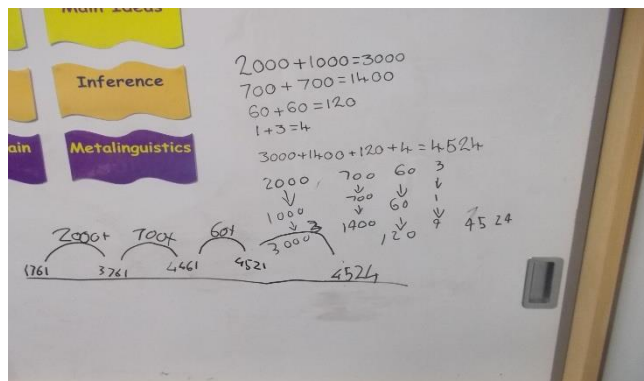 Main Ideas
Inference
ain
Metalinguistics
2000+1000=3000
700+700=1400
60+60=120
1+3=4
3000+1400+120+4=4524
2000 700 60 3
↓ ↓ ↓ ↓
1000 700 60 1
↓ ↓ ↓ ↓
3000 1400 120 4 4524
2000+ 700+ 60+ 3
1761 3761 4461 4521 4524